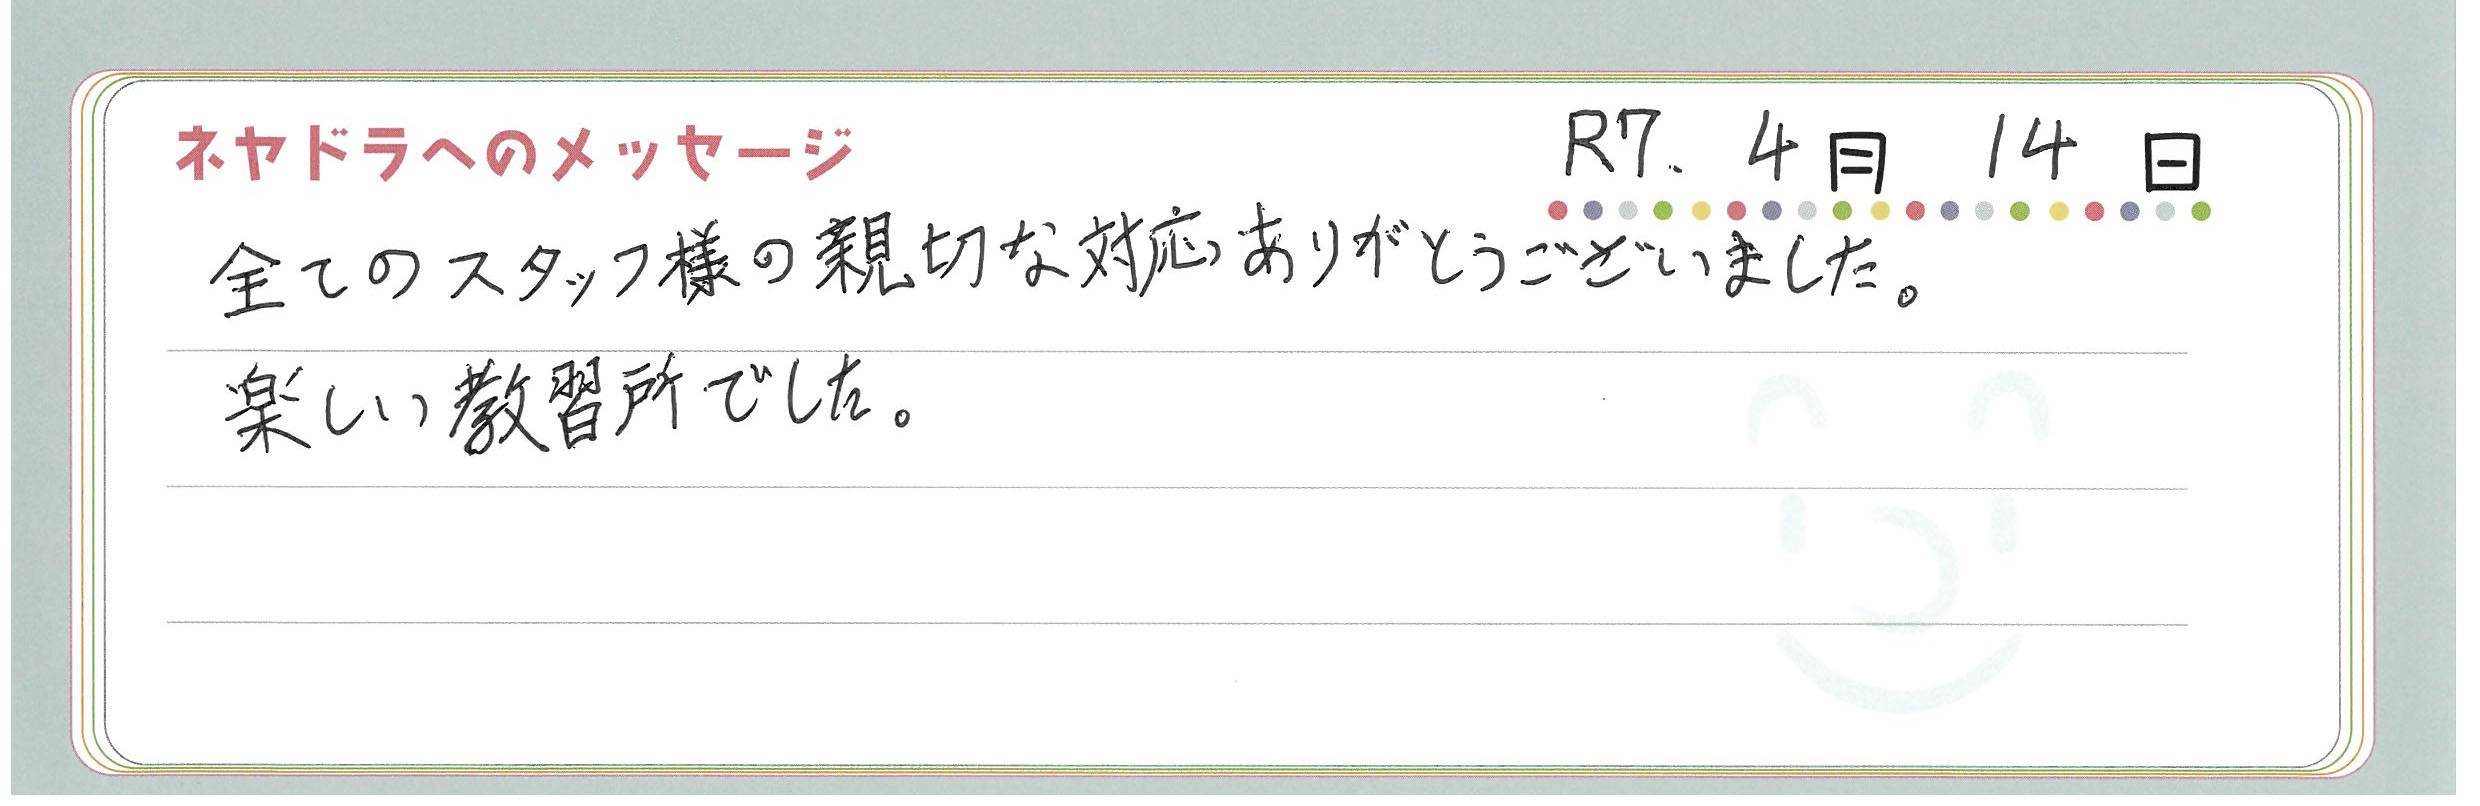 ネヤドラへのメッセージ R7. 4月 14日
全てのスタッフ様の親切な対応ありがとうございました。
楽しい教習所でした。